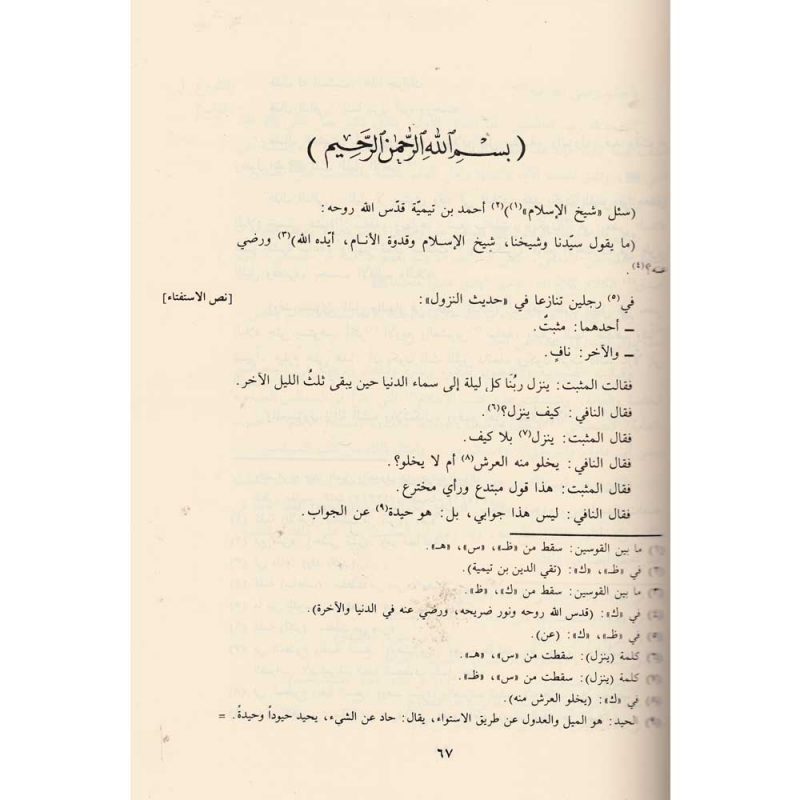 (بسم الله الرحمن الرحيم)
(سئل «شيخ الإسلام»(١))(٢) أحمد بن تيميّة قدّس الله روحه:
(ما يقول سيّدنا وشيخنا، شيخ الإسلام وقدوة الأنام، أيّده الله)(٣) ورضي
عنه؟(٤).
في(٥) رجلين تنازعا في «حديث النزول»:
[نص الاستفتاء]
ــ أحدهما: مثبتٌ.
ــ والآخر: نافٍ.
فقالت المثبت: ينزل ربُنَا كل ليلة إلى سماء الدنيا حين يبقى ثلثُ الليل الآخر.
فقال النافي: كيف ينزل؟(٦).
فقال المثبت: ينزل(٧) بلا كيف.
فقال النافي: يخلو منه العرش(٨) أم لا يخلو؟.
فقال المثبت: هذا قول مبتدع ورأي مخترع.
فقال النافي: ليس هذا جوابي، بل: هو حيدة(٩) عن الجواب.
(١) ما بين القوسين: سقط من «ظـ»، «س»، «هـ».
(٢) في «ظـ»، «ك»: (تقي الدين بن تيمية).
(٣) ما بين القوسين: سقط من «ك»، «ظ».
(٤) في «ك»: (قدس الله روحه ونور ضريحه، ورضي عنه في الدنيا والآخرة).
(٥) في «ظـ»، «ك»: (عن).
(٦) كلمة (ينزل): سقطت من «س»، «هـ».
(٧) كلمة (ينزل): سقطت من «س»، «ظـ».
(٨) في «ك»: (يخلو العرش منه).
(٩) الحيد: هو الميل والعدول عن طريق الاستواء، يقال: حاد عن الشيء، يحيد حيوداً وحيدةً. =
٦٧